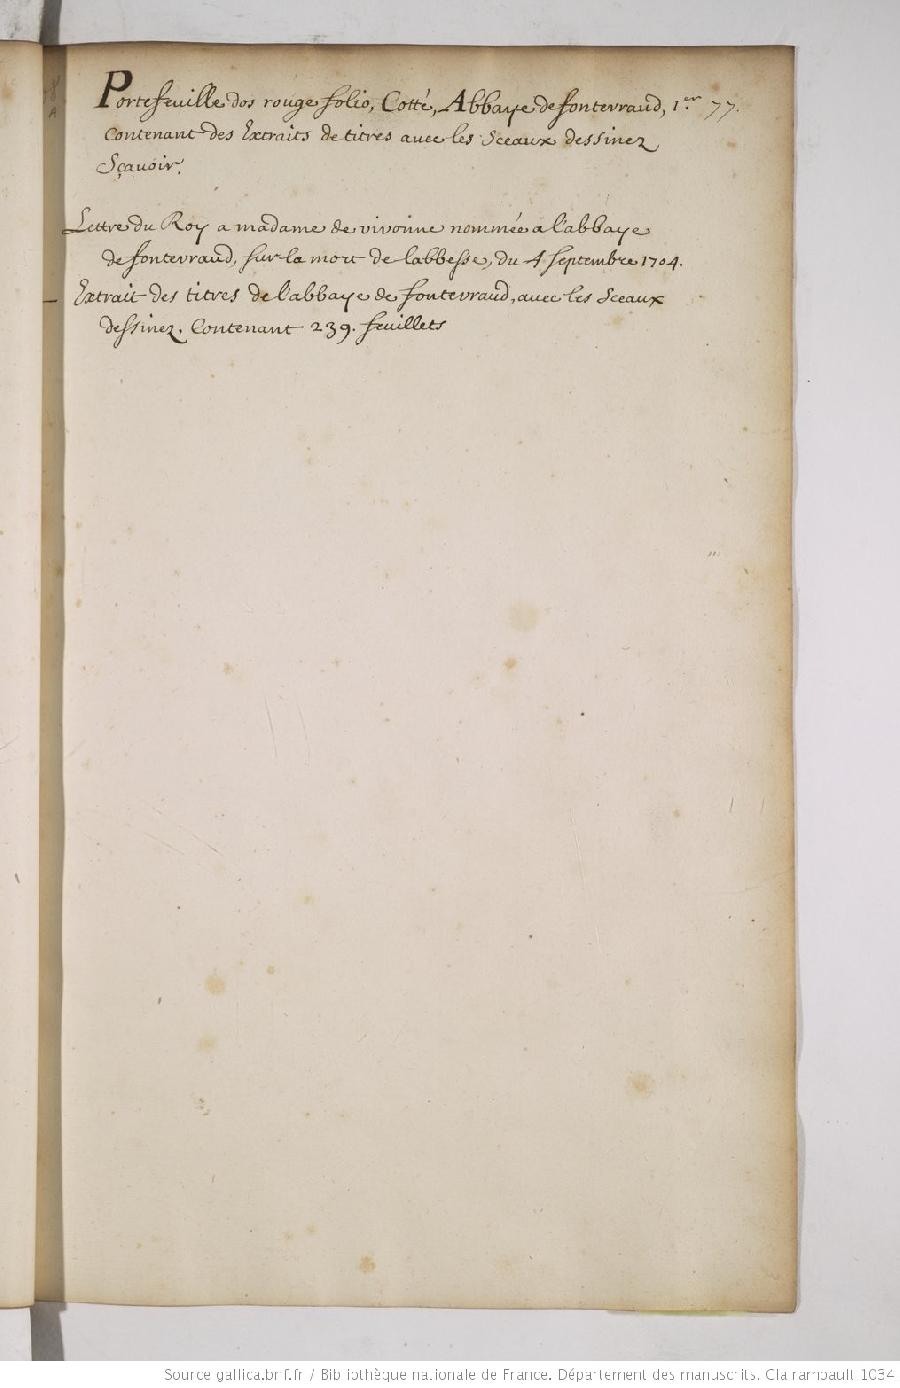 Portefeuille dos rouge folio, Cotté, Abbaye de fontevraud, 1.er 77.
Contenant des Extraits de titres avec les Sceaux dessinez
Sçavoir.
Lettre du Roy a madame de vivonne nommée a l'abbaye
de fontevraud, sur la mort de labbesse, du 4 Septembre 1704.
Extrait des titres de l'abbaye de fontevraud, avec les Sceaux
dessinez. Contenant 239. feuillets
Source gallica.bnf.fr / Bibliothèque nationale de France. Département des manuscrits. Clairambault 1034